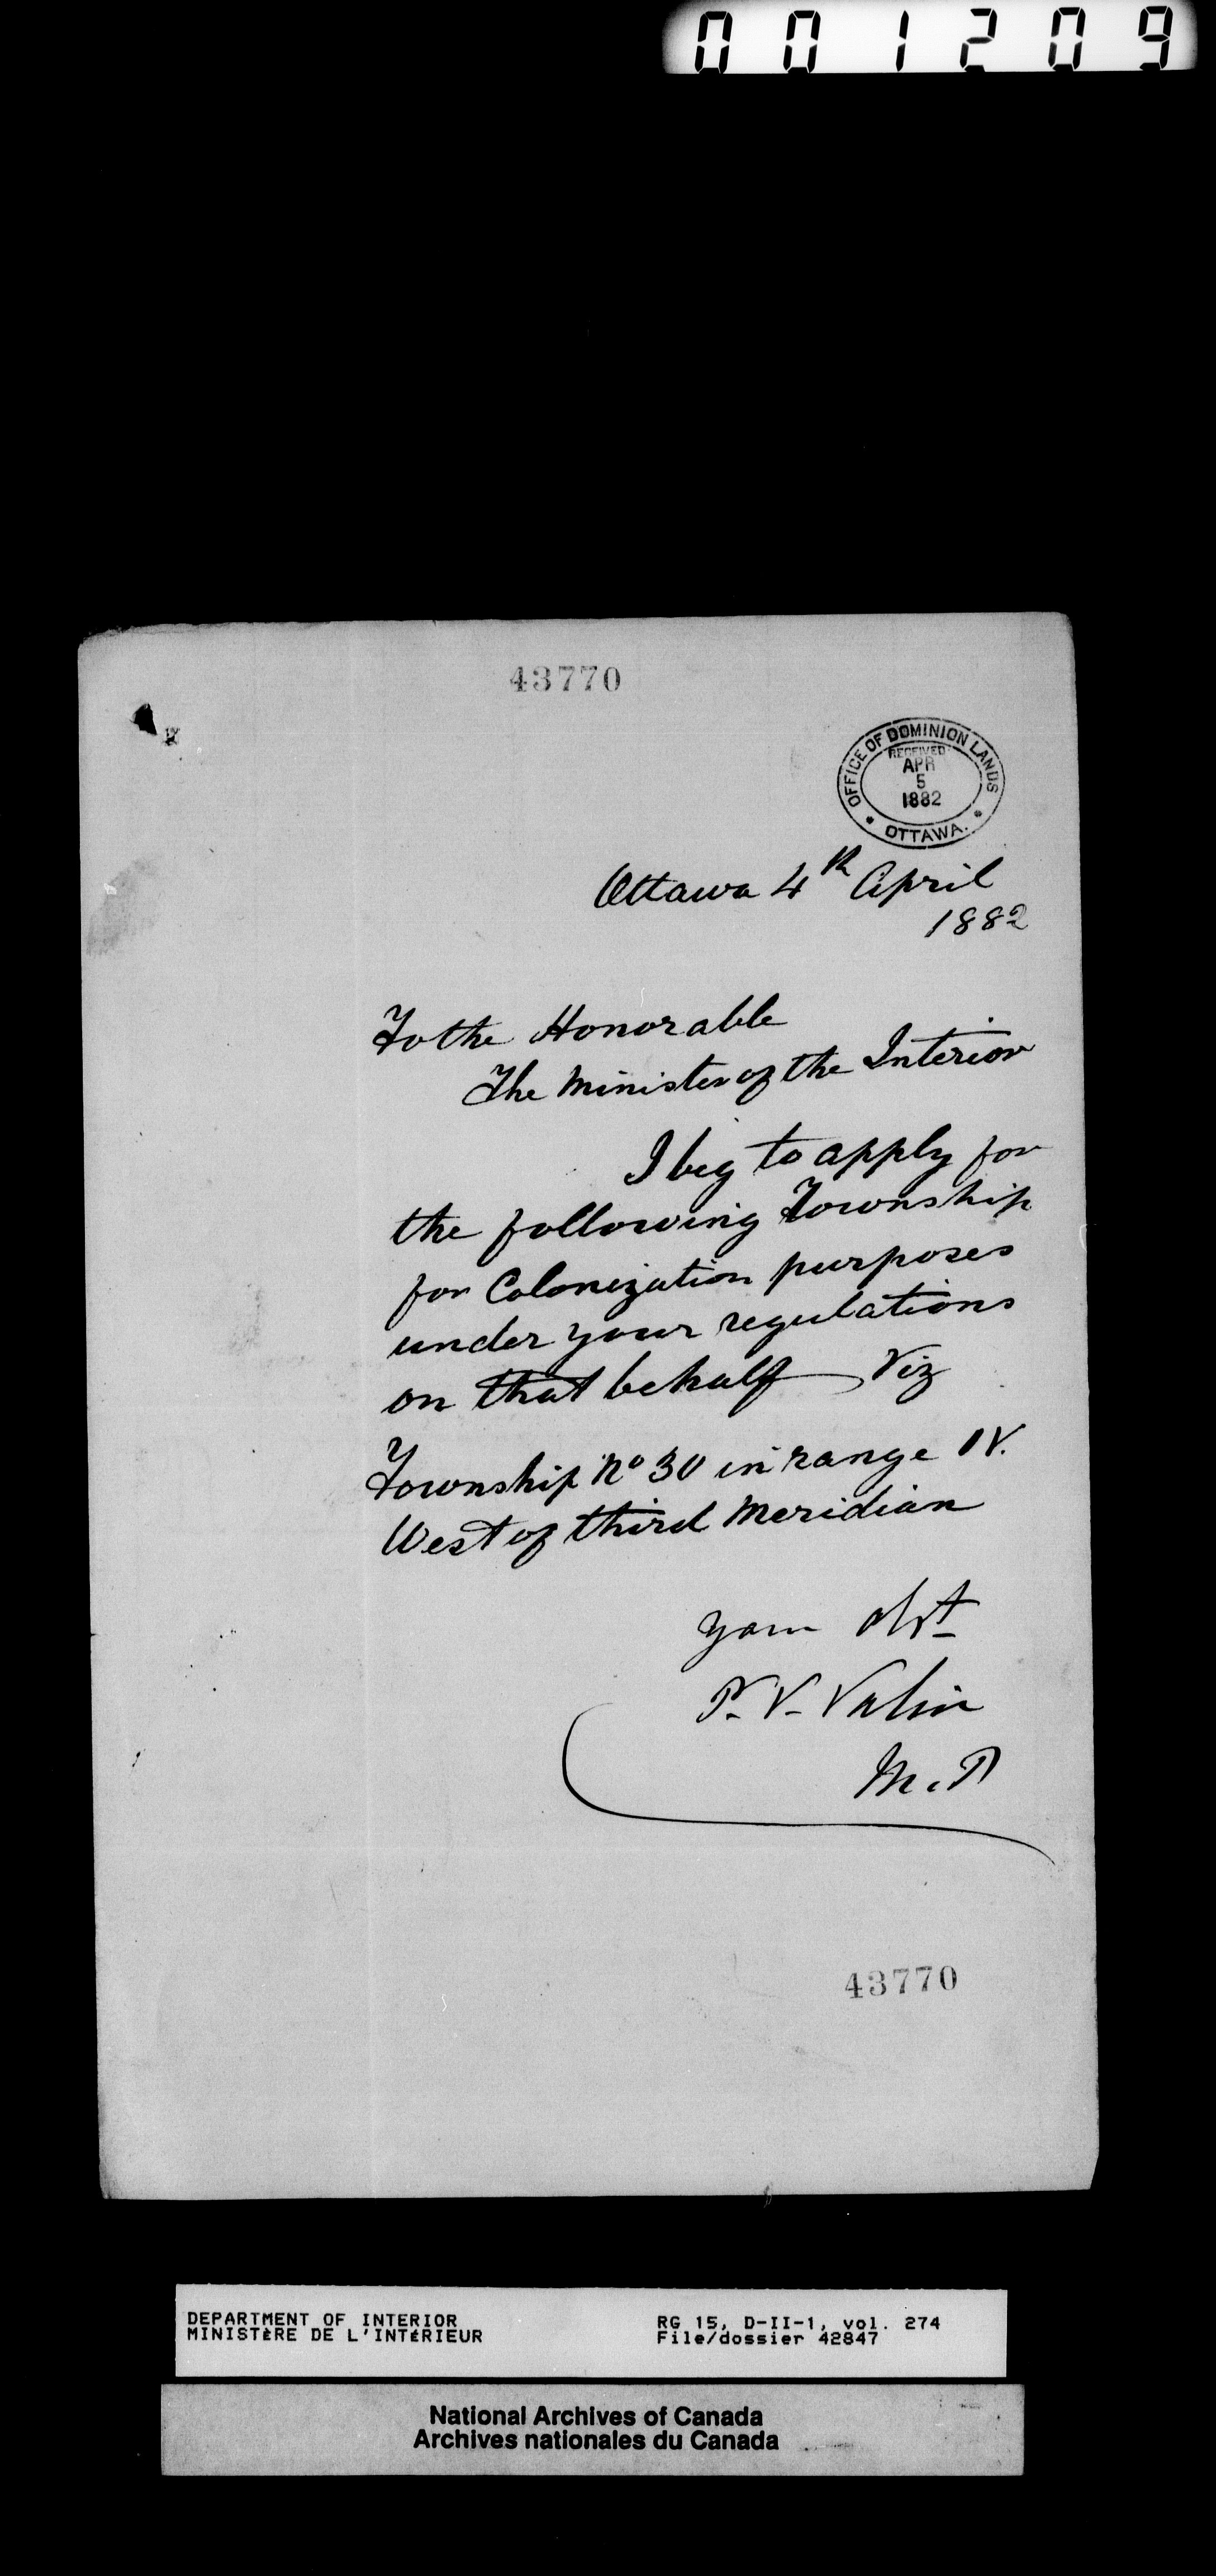 001209
43770
OFFICE OF DOMINION LANDS
RECEIVED
APR
5
1882
OTTAWA.
Ottawa 4th April
1882
To the Honorable
The Minister of the Interior
I beg to apply for
the following Township
for Colonization purposes
under your regulations
on that behalf Viz
Township No 30 in range IV.
West of third Meridian
Your Obt
P. V. Valin
M. P
43770
DEPARTMENT OF INTERIOR
MINISTÈRE DE L'INTÉRIEUR
RG 15, D-II-1, vol. 274
File/dossier 42847
National Archives of Canada
Archives nationales du Canada